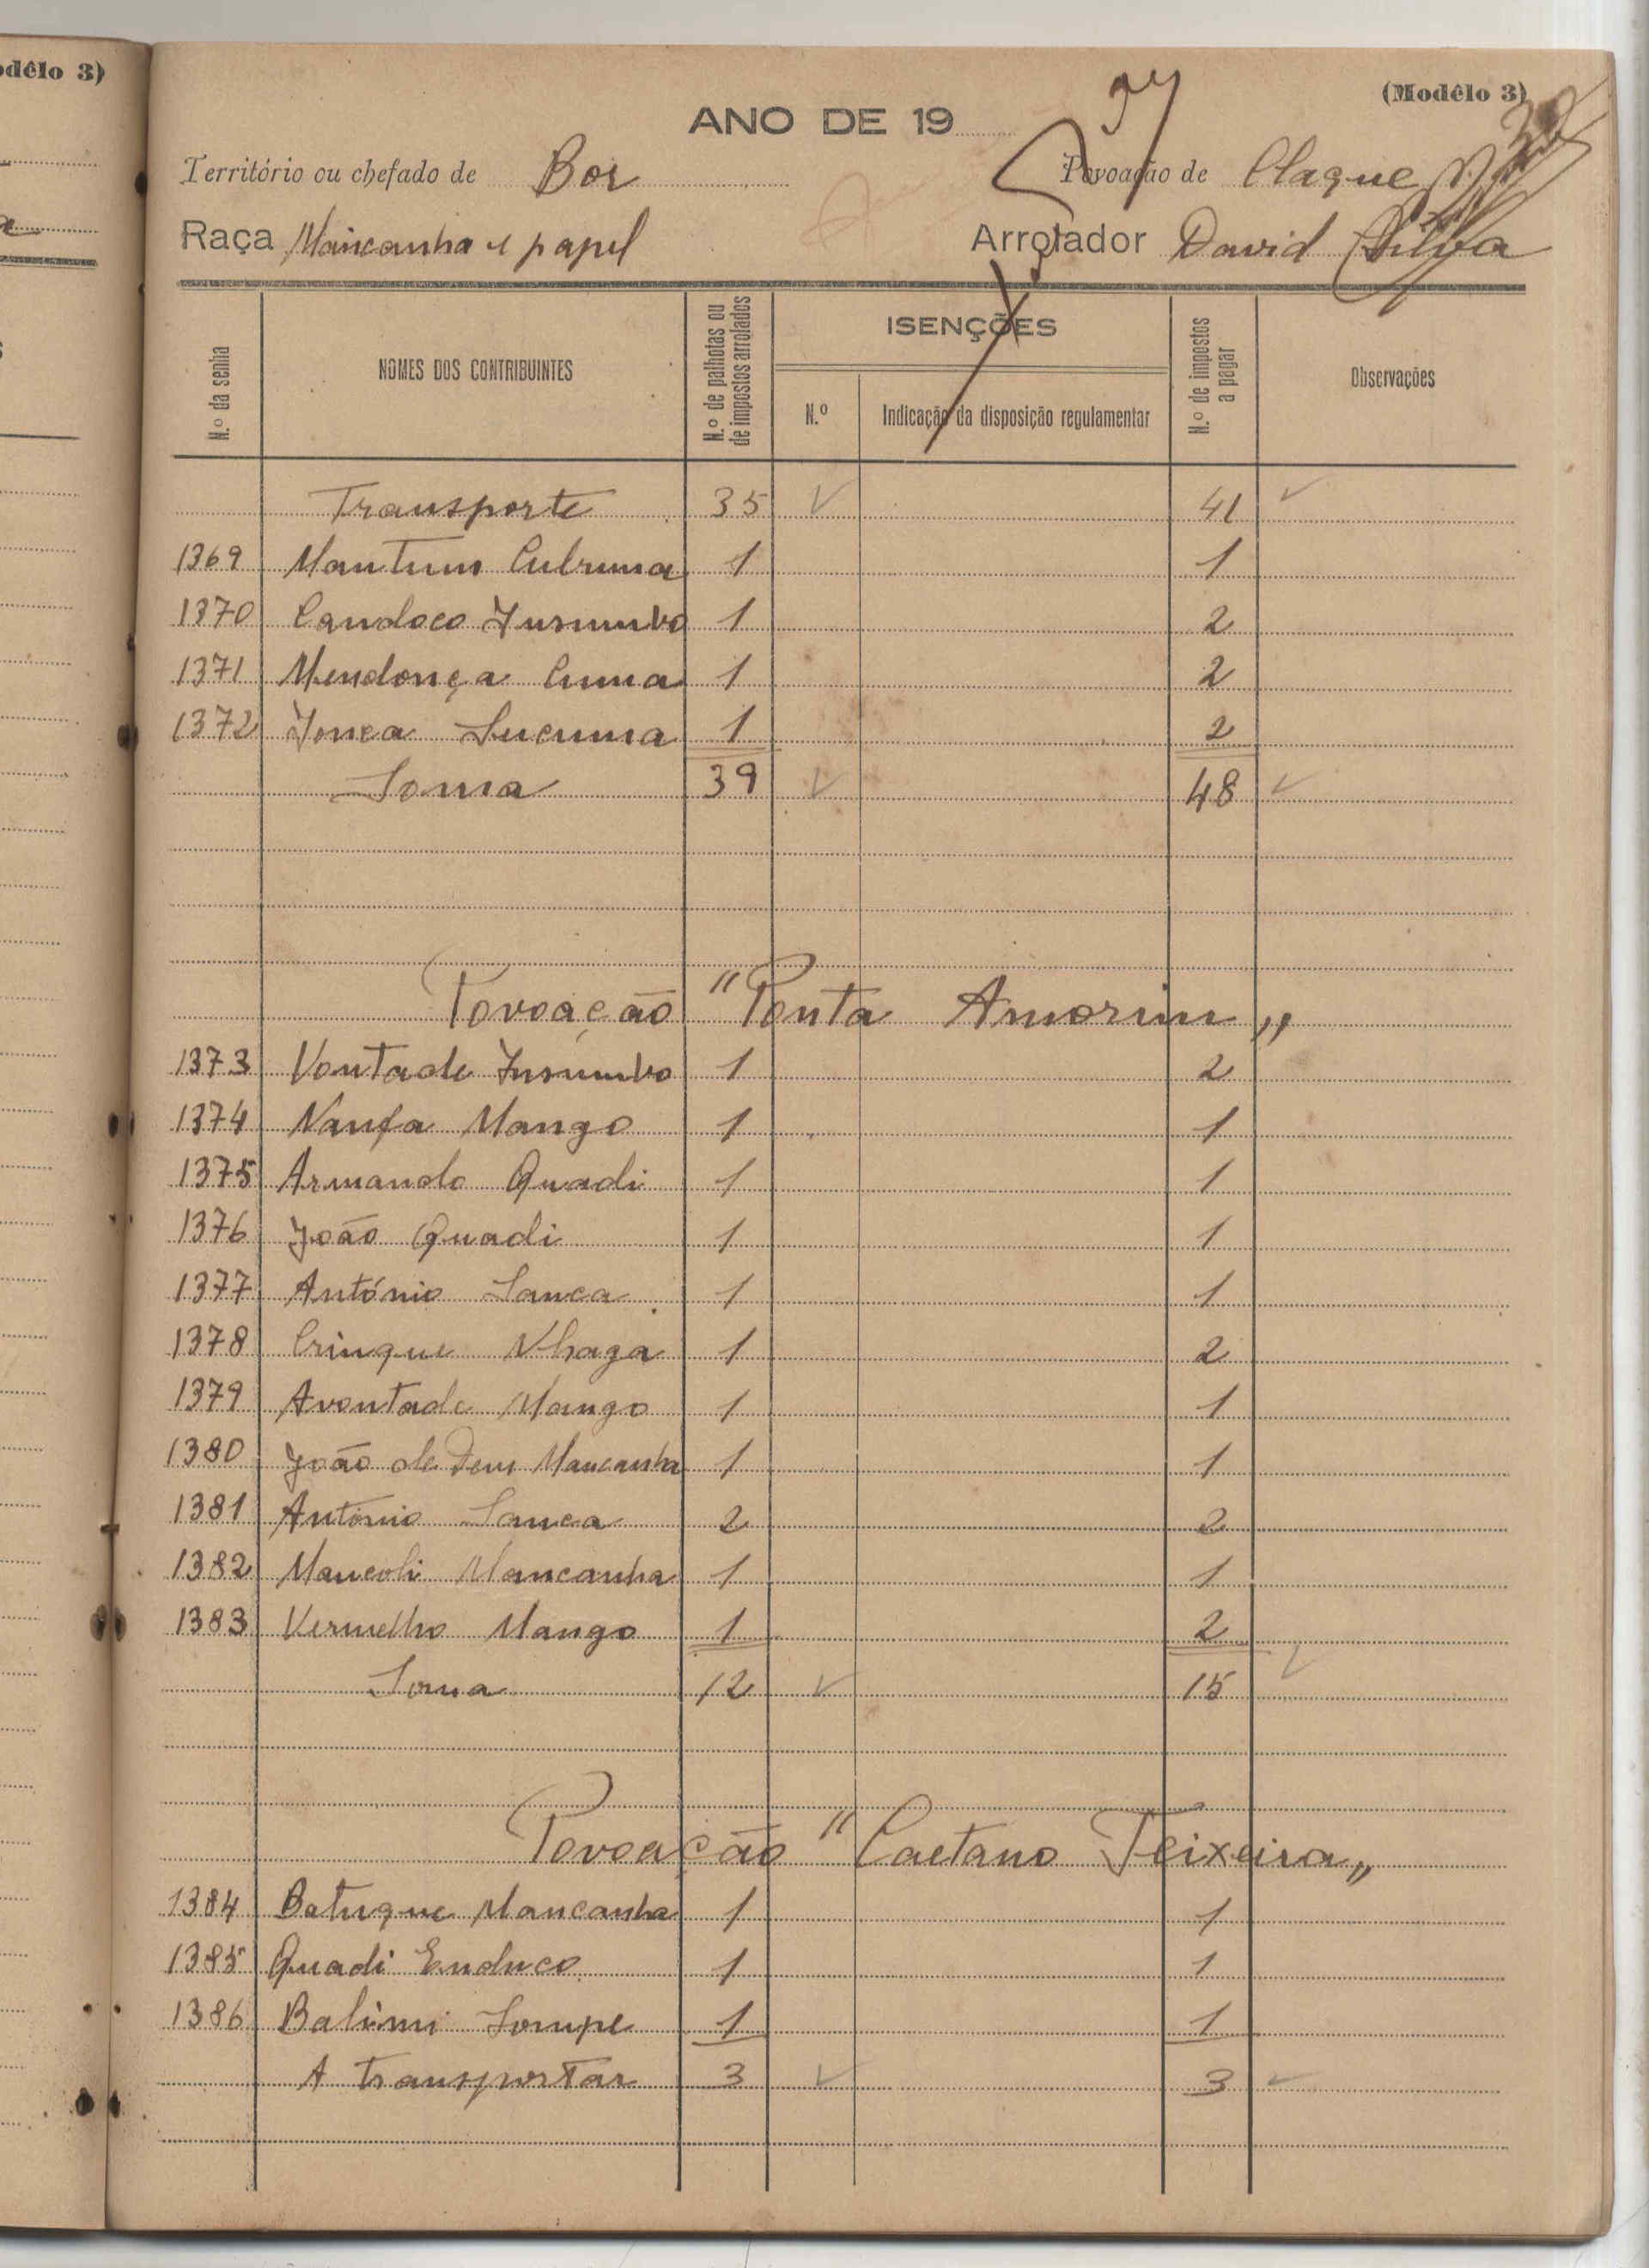 odêlo 3)
(Modêlo 3)
ANO DE 19
Território ou chefado de Bor Povoação de Claque
Raça Mancanha e papel Arrolador David Silva
N.º da senha NOMES DOS CONTRIBUINTES N.º de palhotas ou de impostos arrolados ISENÇÕES N.º Indicação da disposição regulamentar N.º de impostos a pagar Observações
Transporte 35 41
1369 Mantum Cubuma 1 1
1370 Candoco Jusumbo 1 2
1371 Mendonça Cuma 1 2
1372 Jonca Sucuma 1 2
Soma 39 48
Povoação "Ponta Amorim"
1373 Vontade Jusumbo 1 2
1374 Nanfa Mango 1 1
1375 Armando Quadi 1 1
1376 João Quadi 1 1
1377 António Sanca 1 1
1378 Crinque Nhaga 1 2
1379 Avontade Mango 1 1
1380 João de Deus Mancanha 1 1
1381 António Sanca 2 2
1382 Mancoli Mancanha 1 1
1383 Vermelho Mango 1 2
Soma 12 15
Povoação "Caetano Teixeira"
1384 Batuque Mancanha 1 1
1385 Quadi Enduco 1 1
1386 Balimi Sompe 1 1
A transportar 3 3